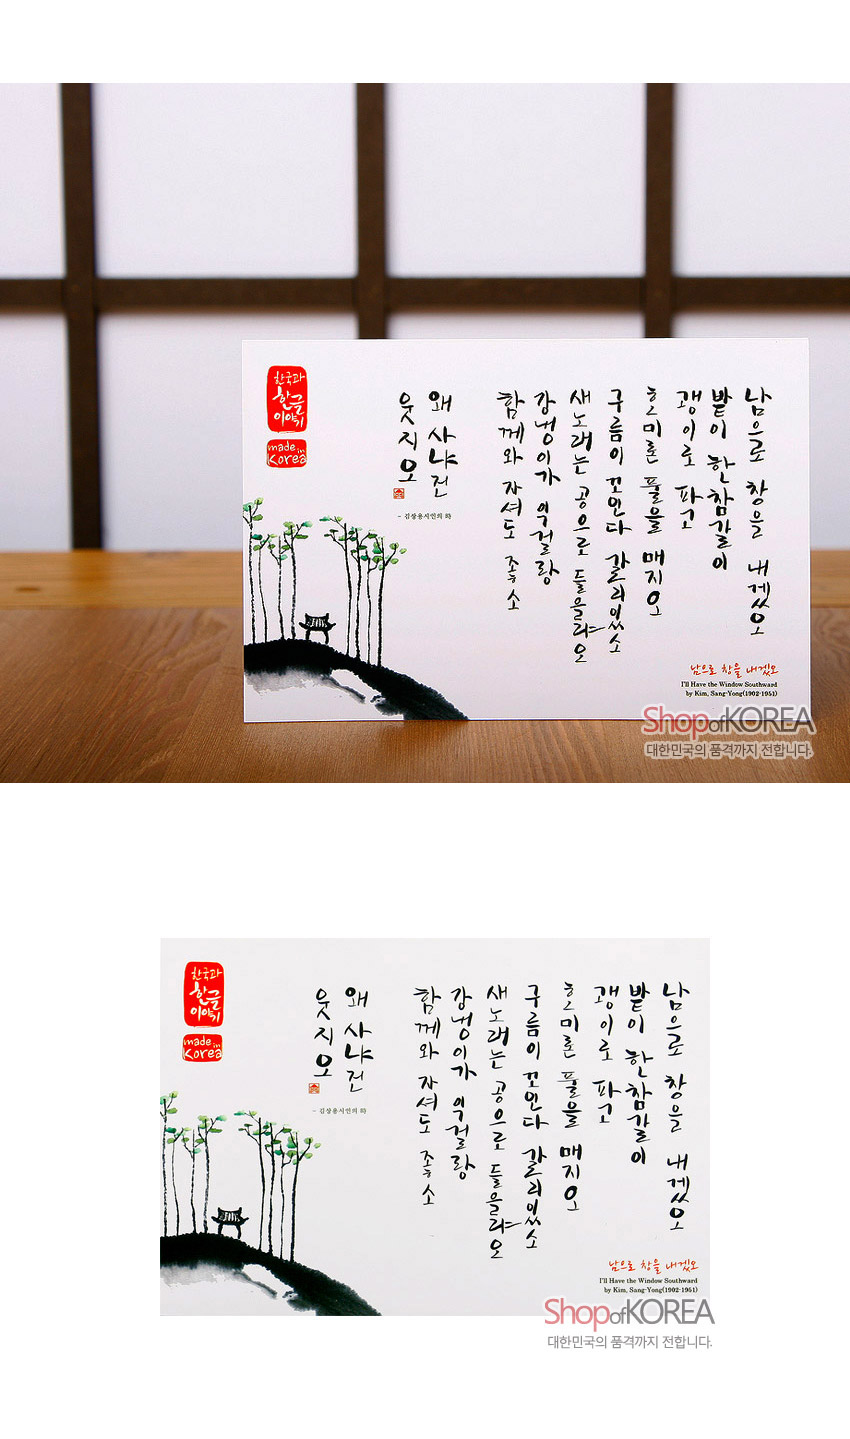 한국과
한글
이야기
made in
Korea
남으로 창을 내겠오
밭이 한참갈이
괭이로 파고
호미론 풀을 매지오
구름이 꼬인다 갈리있소
새노래는 공으로 들을랴오
강냉이가 익걸랑
함께와 자셔도 좋소
왜 사냐건
웃지오
- 김상용시인의
남으로 창을 내겠오
I'll Have the Window Southward
by Kim, Sang-Yong(1902-1951)
Shop of KOREA
대한민국의 품격까지 전합니다.
한국과
한글
이야기
made in
Korea
남으로 창을 내겠오
밭이 한참갈이
괭이로 파고
호미론 풀을 매지오
구름이 꼬인다 갈리있소
새노래는 공으로 들을랴오
강냉이가 익걸랑
함께와 자셔도 좋소
왜 사냐건
웃지오
- 김상용시인의
남으로 창을 내겠오
I'll Have the Window Southward
by Kim, Sang-Yong(1902-1951)
Shop of KOREA
대한민국의 품격까지 전합니다.